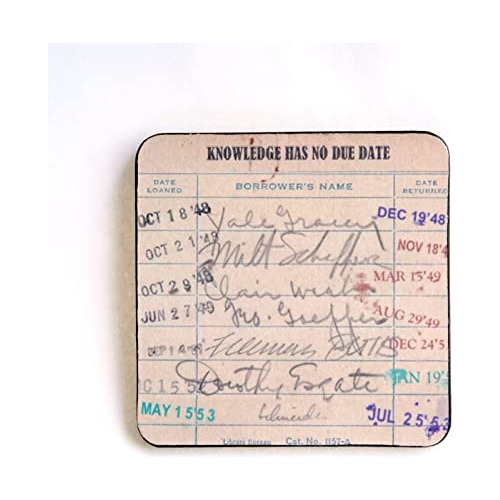 KNOWLEDGE HAS NO DUE DATE
DATE LOANED BORROWER'S NAME DATE RETURNED
OCT 18 '48 Yale Gracey DEC 19 '48
OCT 21 '48 Milt NOV 18 '4
OCT 29 '48 Clair Weeks MAR 15 '49
JUN 27 '49 Geo. AUG 29 '49
DEC 24 '5
Dorothy Esgate JAN 19 '5
MAY 15 '53 JUL 25 '53
Library Bureau Cat. No. 1157-A